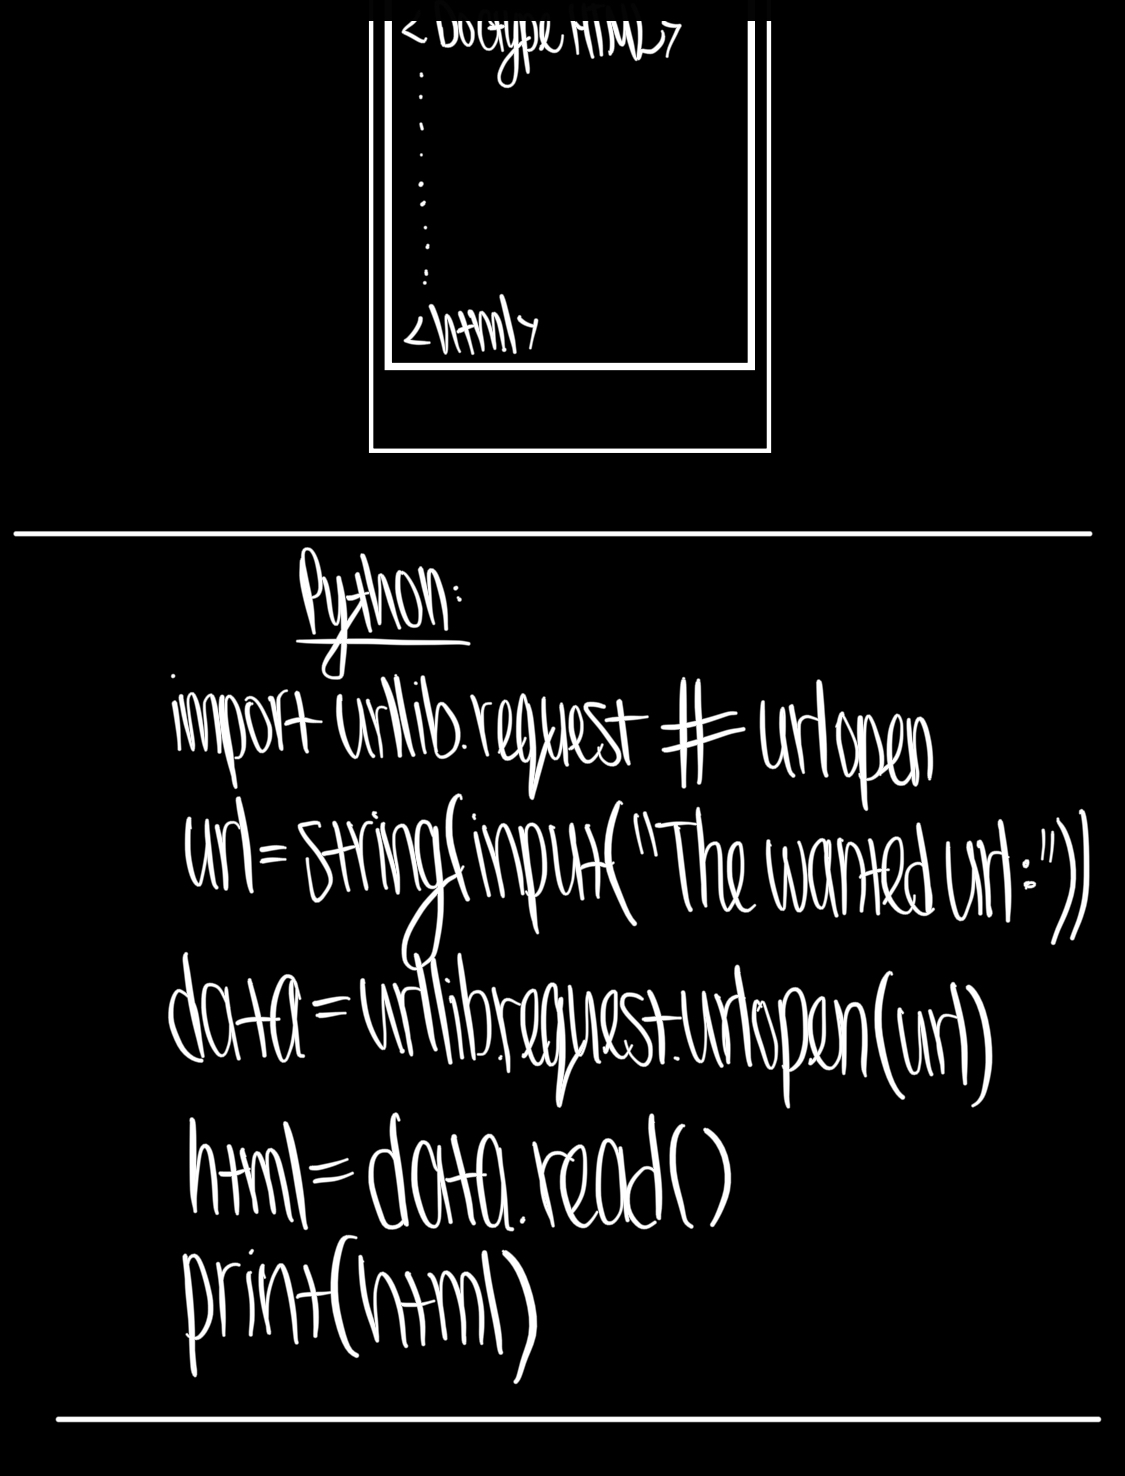 <Doctype HTML>
<html>
Python:
import urllib.request # urlopen
url=string(input("The wanted url:"))
data=urllib.request.urlopen(url)
html=data.read()
print(html)